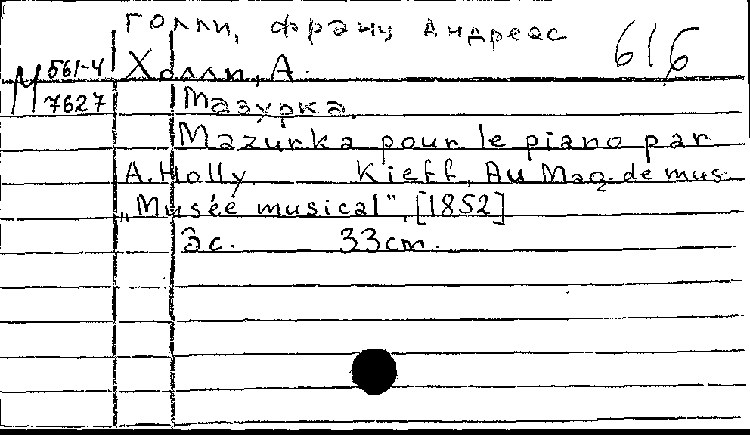 Голли, Франц Андреас
616
М 561-4 Холли, А.
7627 Мазурка.
Mazurka pour le piano par
A. Holly Kieff, Au Mag. de mus.
„Musée musical", [1852]
3 с. 33 cm.